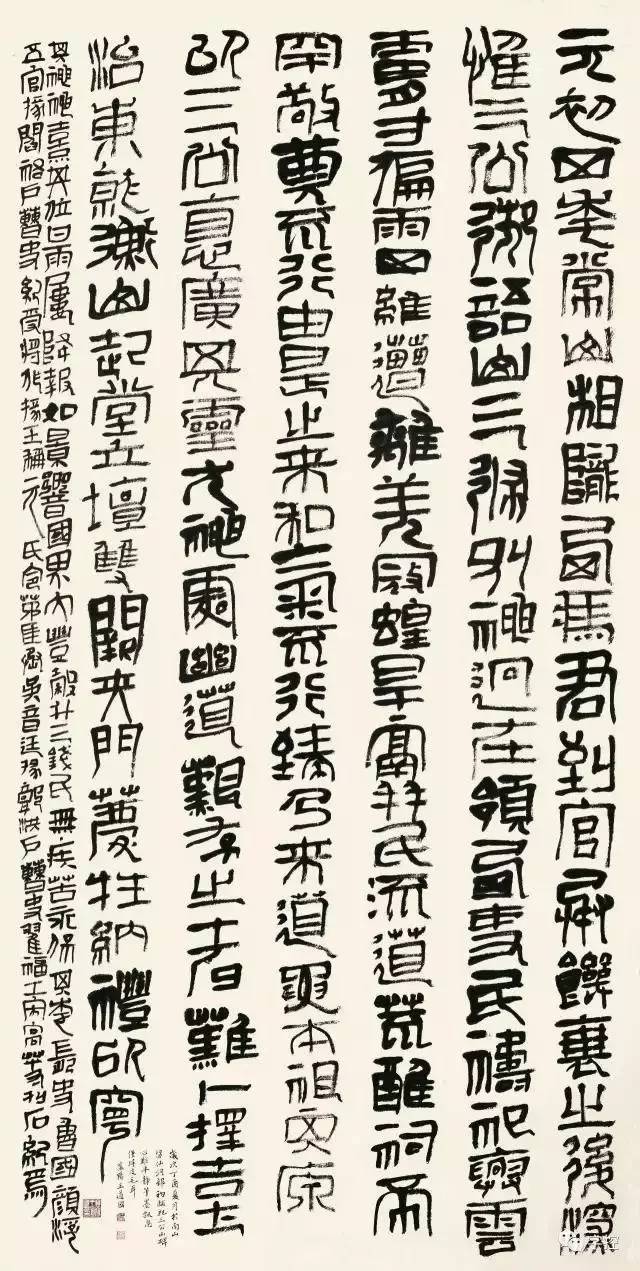 元初四年常山相隴西馮君到官承饑衰之後深
惟三公御語山三條別神迥在領西吏民禱祀興雲
膚寸徧雨四維遭離羌寇蝗旱鬲我民流道荒醮祠希
罕敬奠不行由是之來和氣不行臻乃來道要本祖其原
以三公惪廣其靈尤神處幽道艱存之者難卜擇吉土
治東就衡山起堂立壇雙闕夾門薦牲納禮以寧
其神神熹其位甘雨屢降報如景響國界大豐穀斗三錢民無疾苦永保其年長史魯國顏浮
五官掾閻祐戶曹史紀受將作掾王元氏令茅匡丞吳音廷掾郭洪戶曹史翟福工宋高等刊石紀焉
歲次丁酉夏月於南山
臨祀三公山碑
平靜筆墨
僅得皮毛耳
王道國